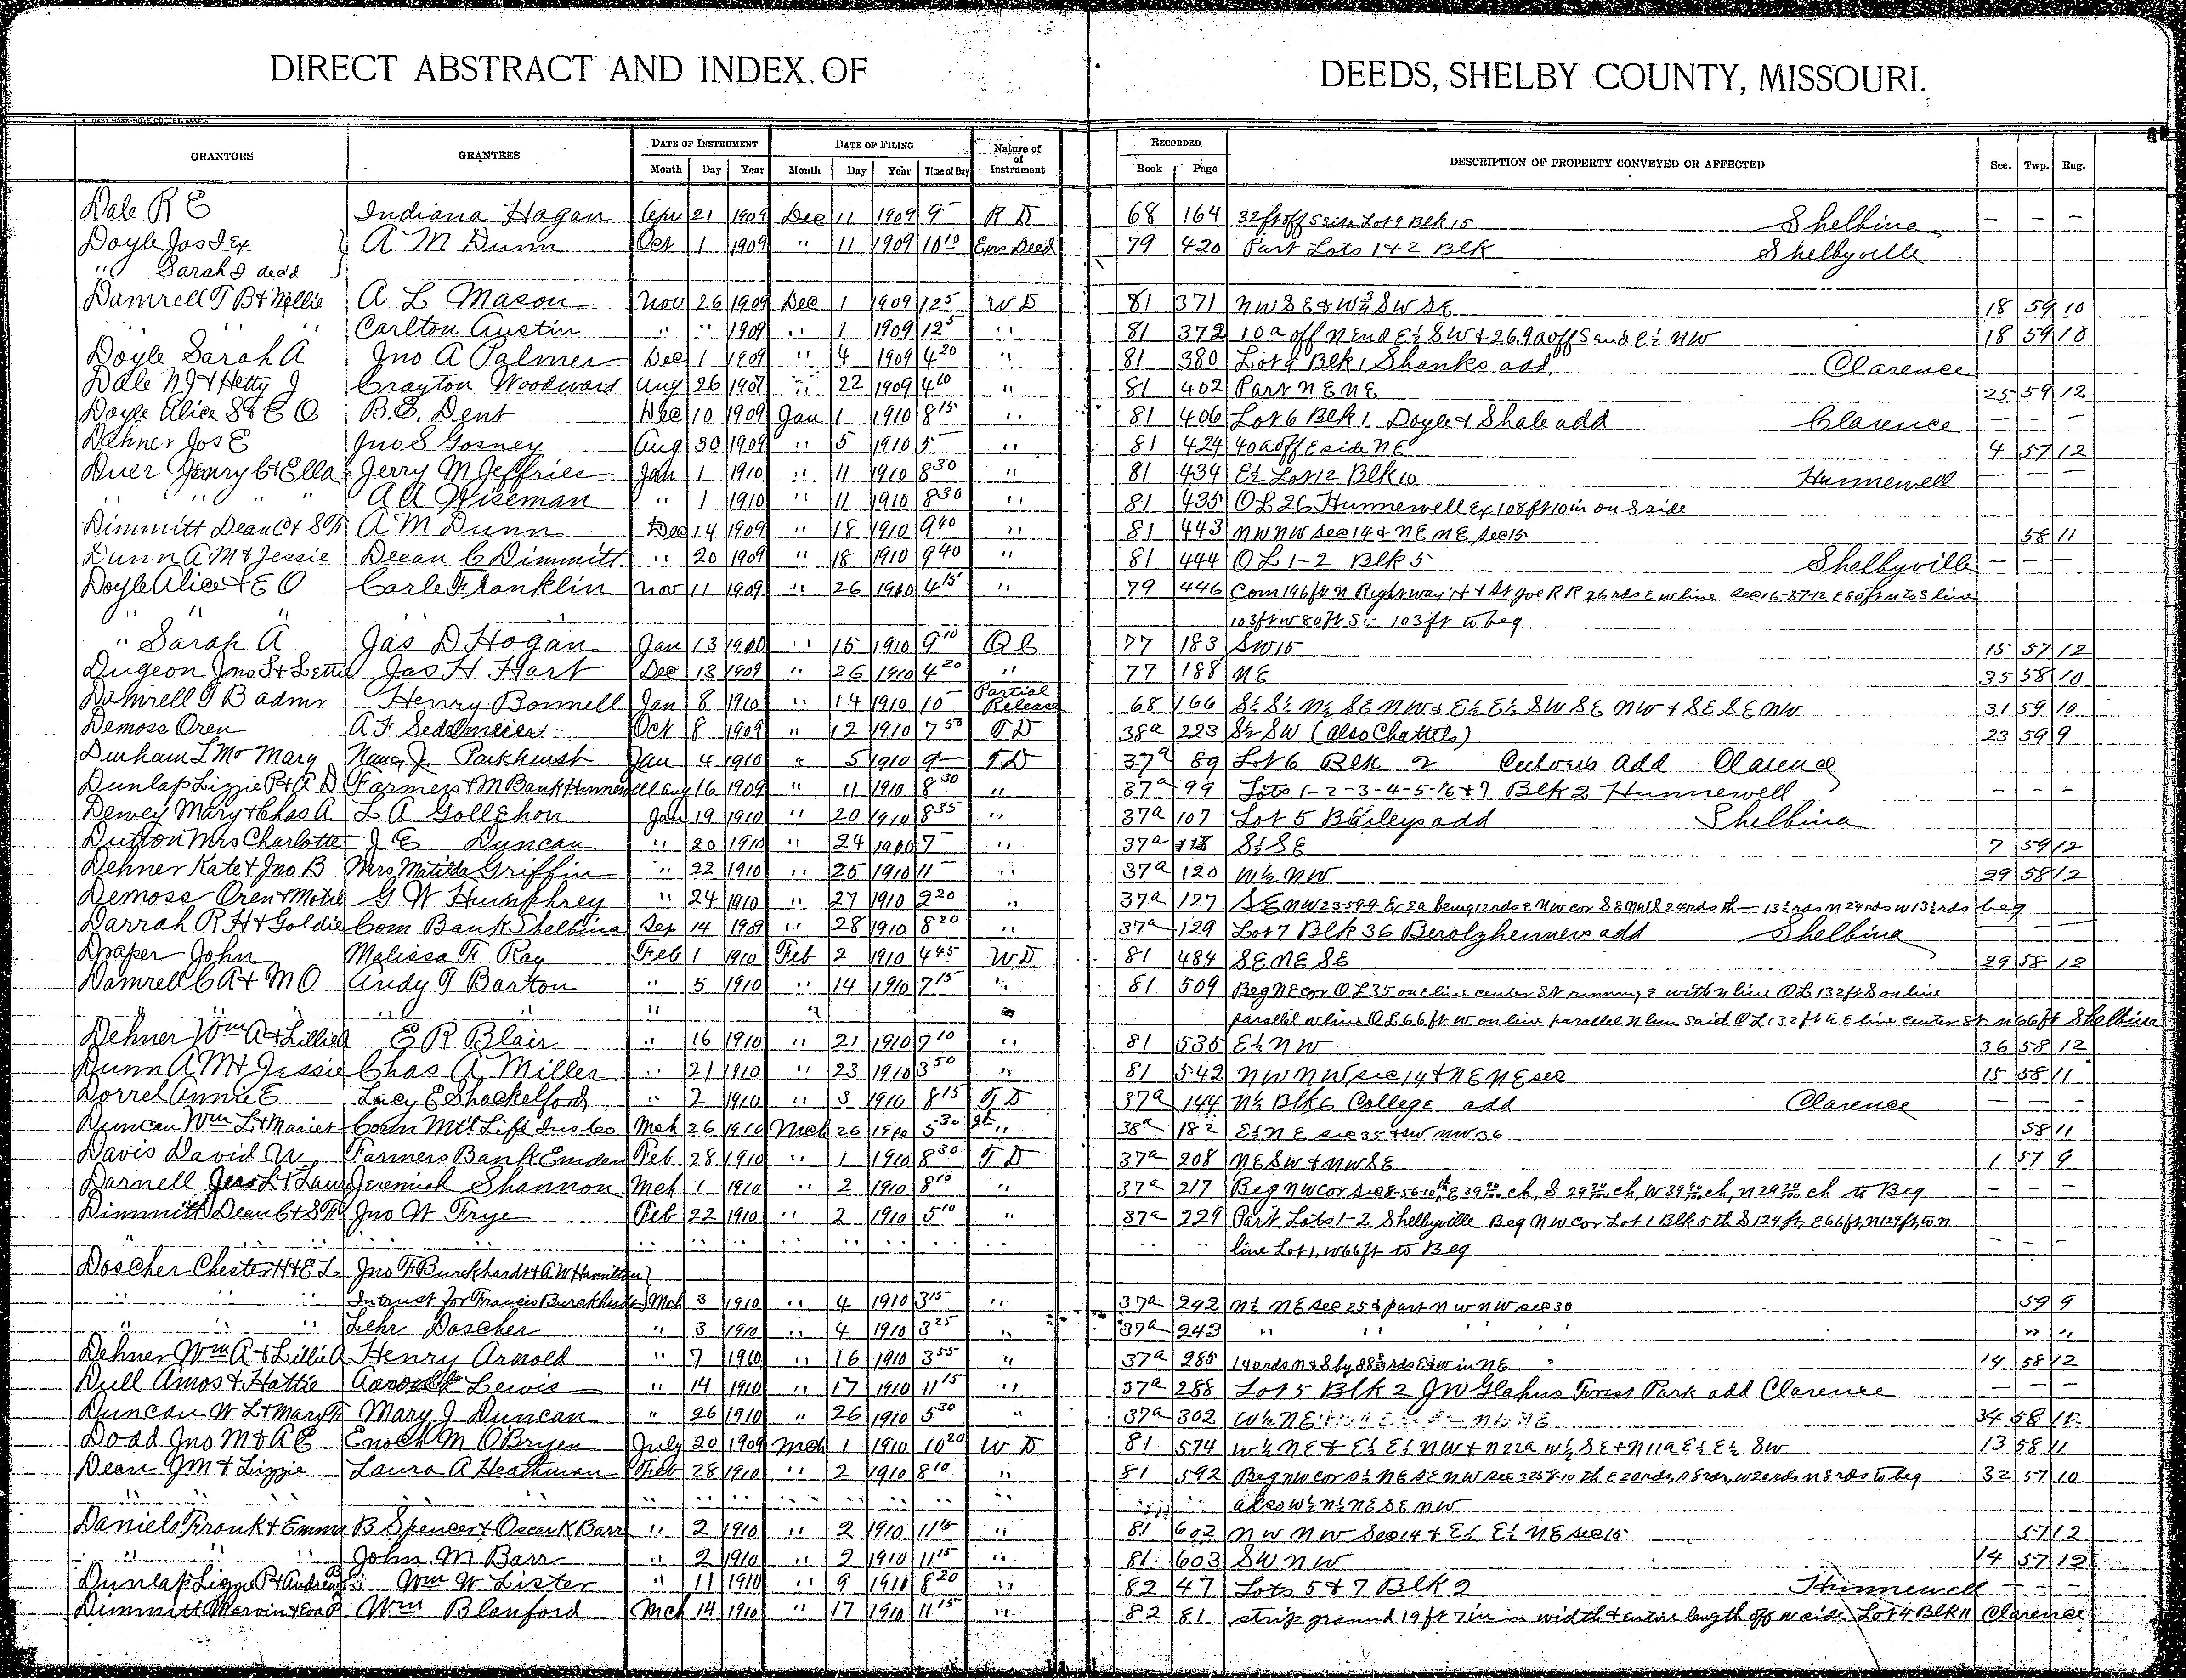 DIRECT ABSTRACT AND INDEX OF DEEDS, SHELBY COUNTY, MISSOURI.
GRANTORS GRANTEES DATE OF INSTRUMENT DATE OF FILING Nature of Instrument RECORDED DESCRIPTION OF PROPERTY CONVEYED OR AFFECTED Sec. Twp. Rng.
Month Day Year Month Day Year Time of Day Book Page
Dale R E Indiana Hagan Apr 21 1909 Dec 11 1909 9 – R D 68 164 32 ft off S side Lot 9 Blk 15 Shelbina – – –
Doyle Jas I Ex A M Dunn Oct 1 1909 " 11 1909 10 10 Exrs Deed 79 420 Part Lots 1 & 2 Blk Shelbyville
" Sarah J dec'd
Damrell T B & Nellie A L Mason Nov 26 1909 Dec 1 1909 1 25 W D 81 371 NW SE & W SW SE 18 59 10
" " " Carlton Austin " " 1909 " 1 1909 1 25 " 81 372 10a off N end E½ SW & 26.9a off S end E½ NW 18 59 10
Doyle Sarah A Jno A Palmer Dec 1 1909 " 4 1909 4 20 " 81 380 Lot 9 Blk 1 Shanks add Clarence
Dale N J & Hetty J Crayton Woodward Aug 26 1907 " 22 1909 4 10 " 81 402 Part NE NE 25 59 12
Doyle Alice S & E O B.E. Dent Dec 10 1909 Jan 1 1910 8 15 " 81 406 Lot 6 Blk 1 Doyle & Shale add Clarence – – –
Dehner Jos E Jno S Gosney Aug 30 1909 " 5 1910 5 – " 81 424 40a off E side NE 4 57 12
Duer Henry C & Ella Jerry M Jeffries Jan 1 1910 " 11 1910 8 30 " 81 434 E½ Lot 12 Blk 10 Hunnewell – – –
" " " " A A Wiseman " 1 1910 " 11 1910 8 30 " 81 435 OL 26 Hunnewell Ex 108 ft 10 in on S side
Dimmitt Dean C & S F A M Dunn Dec 14 1909 " 18 1910 9 40 " 81 443 NW NW Sec 14 & NE NE Sec 15 58 11
Dunn A M & Jessie Dean C Dimmitt " 20 1909 " 18 1910 9 40 " 81 444 OL 1-2 Blk 5 Shelbyville – – –
Doyle Alice & E O Carle Franklin Nov 11 1909 " 26 1910 4 15 " 79 446 Com 196 ft N Right way H & St Joe R R 26 rds E W line Sec 16-57-12 E 80 ft N to S line
" " " 103 ft W 80 ft S 103 ft to beg
" Sarah A Jas D Hogan Jan 13 1910 " 15 1910 9 10 Q C 77 183 SW 15 15 57 12
Dugeon Jno S & Lettie Jas H Hart Dec 13 1909 " 26 1910 4 20 " 77 188 NE 35 58 10
Damrell T B admr Henry Bonnell Jan 8 1910 " 14 1910 10 – Partial Release 68 166 S½ S½ N½ SE NW & E½ E½ SW SE NW & SE SE NW 31 59 10
Demoss Oren A F Sedelmeier Oct 8 1909 " 12 1910 7 50 T D 38a 223 S½ SW (also Chattels) 23 59 9
Durham L Mc Mary Nancy J. Parkhurst Jan 4 1910 " 5 1910 9 – T D 37a 89 Lot 6 Blk 2 add Clarence
Dunlap Lizzie P & A D Farmers & M Bank Hunnewell Aug 16 1909 " 11 1910 8 30 " 37a 99 Lots 1-2-3-4-5-6 & 7 Blk 2 Hunnewell – – –
Dewey Mary & Chas A L A Gollehon Jan 19 1910 " 20 1910 8 35 " 37a 107 Lot 5 Baileys add Shelbina
Dutton Mrs Charlotte J E Duncan " 20 1910 " 24 1910 7 – " 37a 118 S½ SE 7 59 12
Dehner Kate & Jno B Mrs Matilda Griffin " 22 1910 " 25 1910 11 – " 37a 120 W½ NW 29 58 12
Demoss Oren & Motie G W Humphrey " 24 1910 " 27 1910 9 20 " 37a 127 SE NW 23-59-9 Ex 2a being 12 rds E NW cor SE NW S 24 rds th – 13½ rds N 24 rds W 13½ rds beg
Darrah R H & Goldie Com Bank Shelbina Sep 14 1909 " 28 1910 8 20 37a 129 Lot 7 Blk 36 Berolzheimers add Shelbina
Draper John Malissa F. Ray Feb 1 1910 Feb 2 1910 4 45 W D 81 484 SE NE SE 29 58 12
Damrell C A & M O Andy T Barton " 5 1910 " 14 1910 7 15 " 81 509 Beg NE cor OL 35 on E line center St running E with N line OL 132 ft S on line
" " " " " " parallel W line OL 66 ft W on line parallel N line said OL 132 ft E line center St N 66 ft Shelbina
Dehner Wm A & Lillie A E R Blair " 16 1910 " 21 1910 7 10 " 81 535 E½ NW 36 58 12
Dunn A M & Jessie Chas A Miller " 21 1910 " 23 1910 3 50 " 81 542 NW NW Sec 14 & NE NE Sec 15 58 11
Dorrel Annie E Lucy E Shackelford " 2 1910 " 3 1910 8 15 T D 37a 144 N½ Blk 6 College add Clarence – – –
Duncan Wm L & Mariet Conn Mtl Life Ins Co Mch 26 1910 Mch 26 1910 5 30 " 38a 182 E½ NE Sec 35 & SW NW 36 58 11
Davis David U Farmers Bank Emden Feb 28 1910 " 1 1910 8 30 T D 37a 208 NE SW & NW SE 1 57 9
Darnell Jess L & Laura Jeremiah Shannon Mch 1 1910 " 2 1910 8 10 " 37a 217 Beg NW cor Sec 8-56-10 th E 39 ch, S 29 ch, W 39 ch, N 29 ch to Beg – – –
Dimmitt Dean C & S F Jno W Frye Feb 22 1910 " 2 1910 5 10 " 37a 229 Part Lots 1-2 Shelbyville Beg NW cor Lot 1 Blk 5 th S 124 ft, E 66 ft, N 124 ft, to N
" " " " " " " " " " " line Lot 1, W 66 ft to Beg – – –
Doscher Chester H & E L Jno F Burckhardt & A W Hamilton
" " " In trust for Francis Burckhardt Mch 3 1910 " 4 1910 3 15 " 37a 242 N½ NE Sec 25 & part NW NW Sec 30 59 9
" " " Lehr Doscher " 3 1910 " 4 1910 3 25 " 37a 243 " " " " " "
Dehner Wm A & Lillie A Henry Arnold " 7 1910 " 16 1910 3 55 " 37a 285 140 rds N & S by 88 rds E & W in NE 14 58 12
Dull Amos & Hattie Lewis " 14 1910 " 17 1910 11 15 " 37a 288 Lot 5 Blk 2 J W Glahns Forest Park add Clarence – – –
Duncan W L & Mary Mary J Duncan " 26 1910 " 26 1910 5 30 " 37a 302 W½ NE 34 58 12
Dodd Jno M & A E Enoch M OBryen July 20 1909 Mch 1 1910 10 20 W D 81 574 W½ NE & E½ E½ NW & N 22a W½ SE & N 11a E½ E½ SW 13 58 11
Dean J M & Lizzie Laura A Heathman Feb 28 1910 " 2 1910 8 10 " 81 592 Beg NW cor S½ NE SE NW Sec 32 58-10 th E 20 rds, S 8 rds, W 20 rds N 8 rds to beg 32 57 10
" " " " " " " " " " " also W½ N½ NE SE NW
Daniels Frank & Emma B Spencer & Oscar K Barr " 2 1910 " 2 1910 11 15 " 81 602 NW NW Sec 14 & E½ E½ NE Sec 15 57 12
" " " John M Barr " 2 1910 " 2 1910 11 15 " 81 603 SW NW 14 57 12
Dunlap Lizzie P & Andrew Wm W Lister " 11 1910 " 9 1910 8 20 " 82 47 Lots 5 & 7 Blk 2 Hunnewell – – –
Dimmitt Marvin & Eva P Wm Blanford Mch 14 1910 " 17 1910 11 15 " 82 81 strip ground 19 ft 7 in in width & entire length off W side Lot 4 Blk 11 Clarence